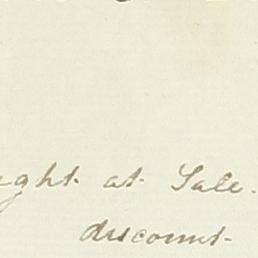 ght at Sale.
discount